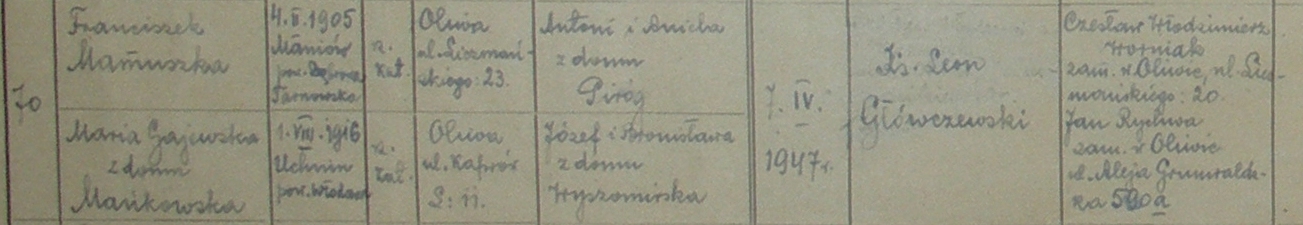 70
Franciszek
Mamuszka
4.II.1905
Maniów
pow. Dąbrowa
Tarnowska
rz.
kat.
Oliwa
ul. Liczmań-
skiego: 23.
Antoni i Aniela
z domu
Piróg
Maria Gajewska
z domu
Mańkowska
1.VIII.1916
Uchnin
pow. Włodawa
rz.
kat.
Oliwa
ul. Kaprów
L: 11.
Józef i Bronisława
z domu
Wyszomirska
7. IV.
1947r.
Ks. Leon
Główczewski
Czesław Włodzimierz
Woźniak
zam. w Oliwie, ul. Licz-
mańskiego: 20.
Jan Rychwa
zam. w Oliwie
ul. Aleja Grunwaldz-
ka 590a